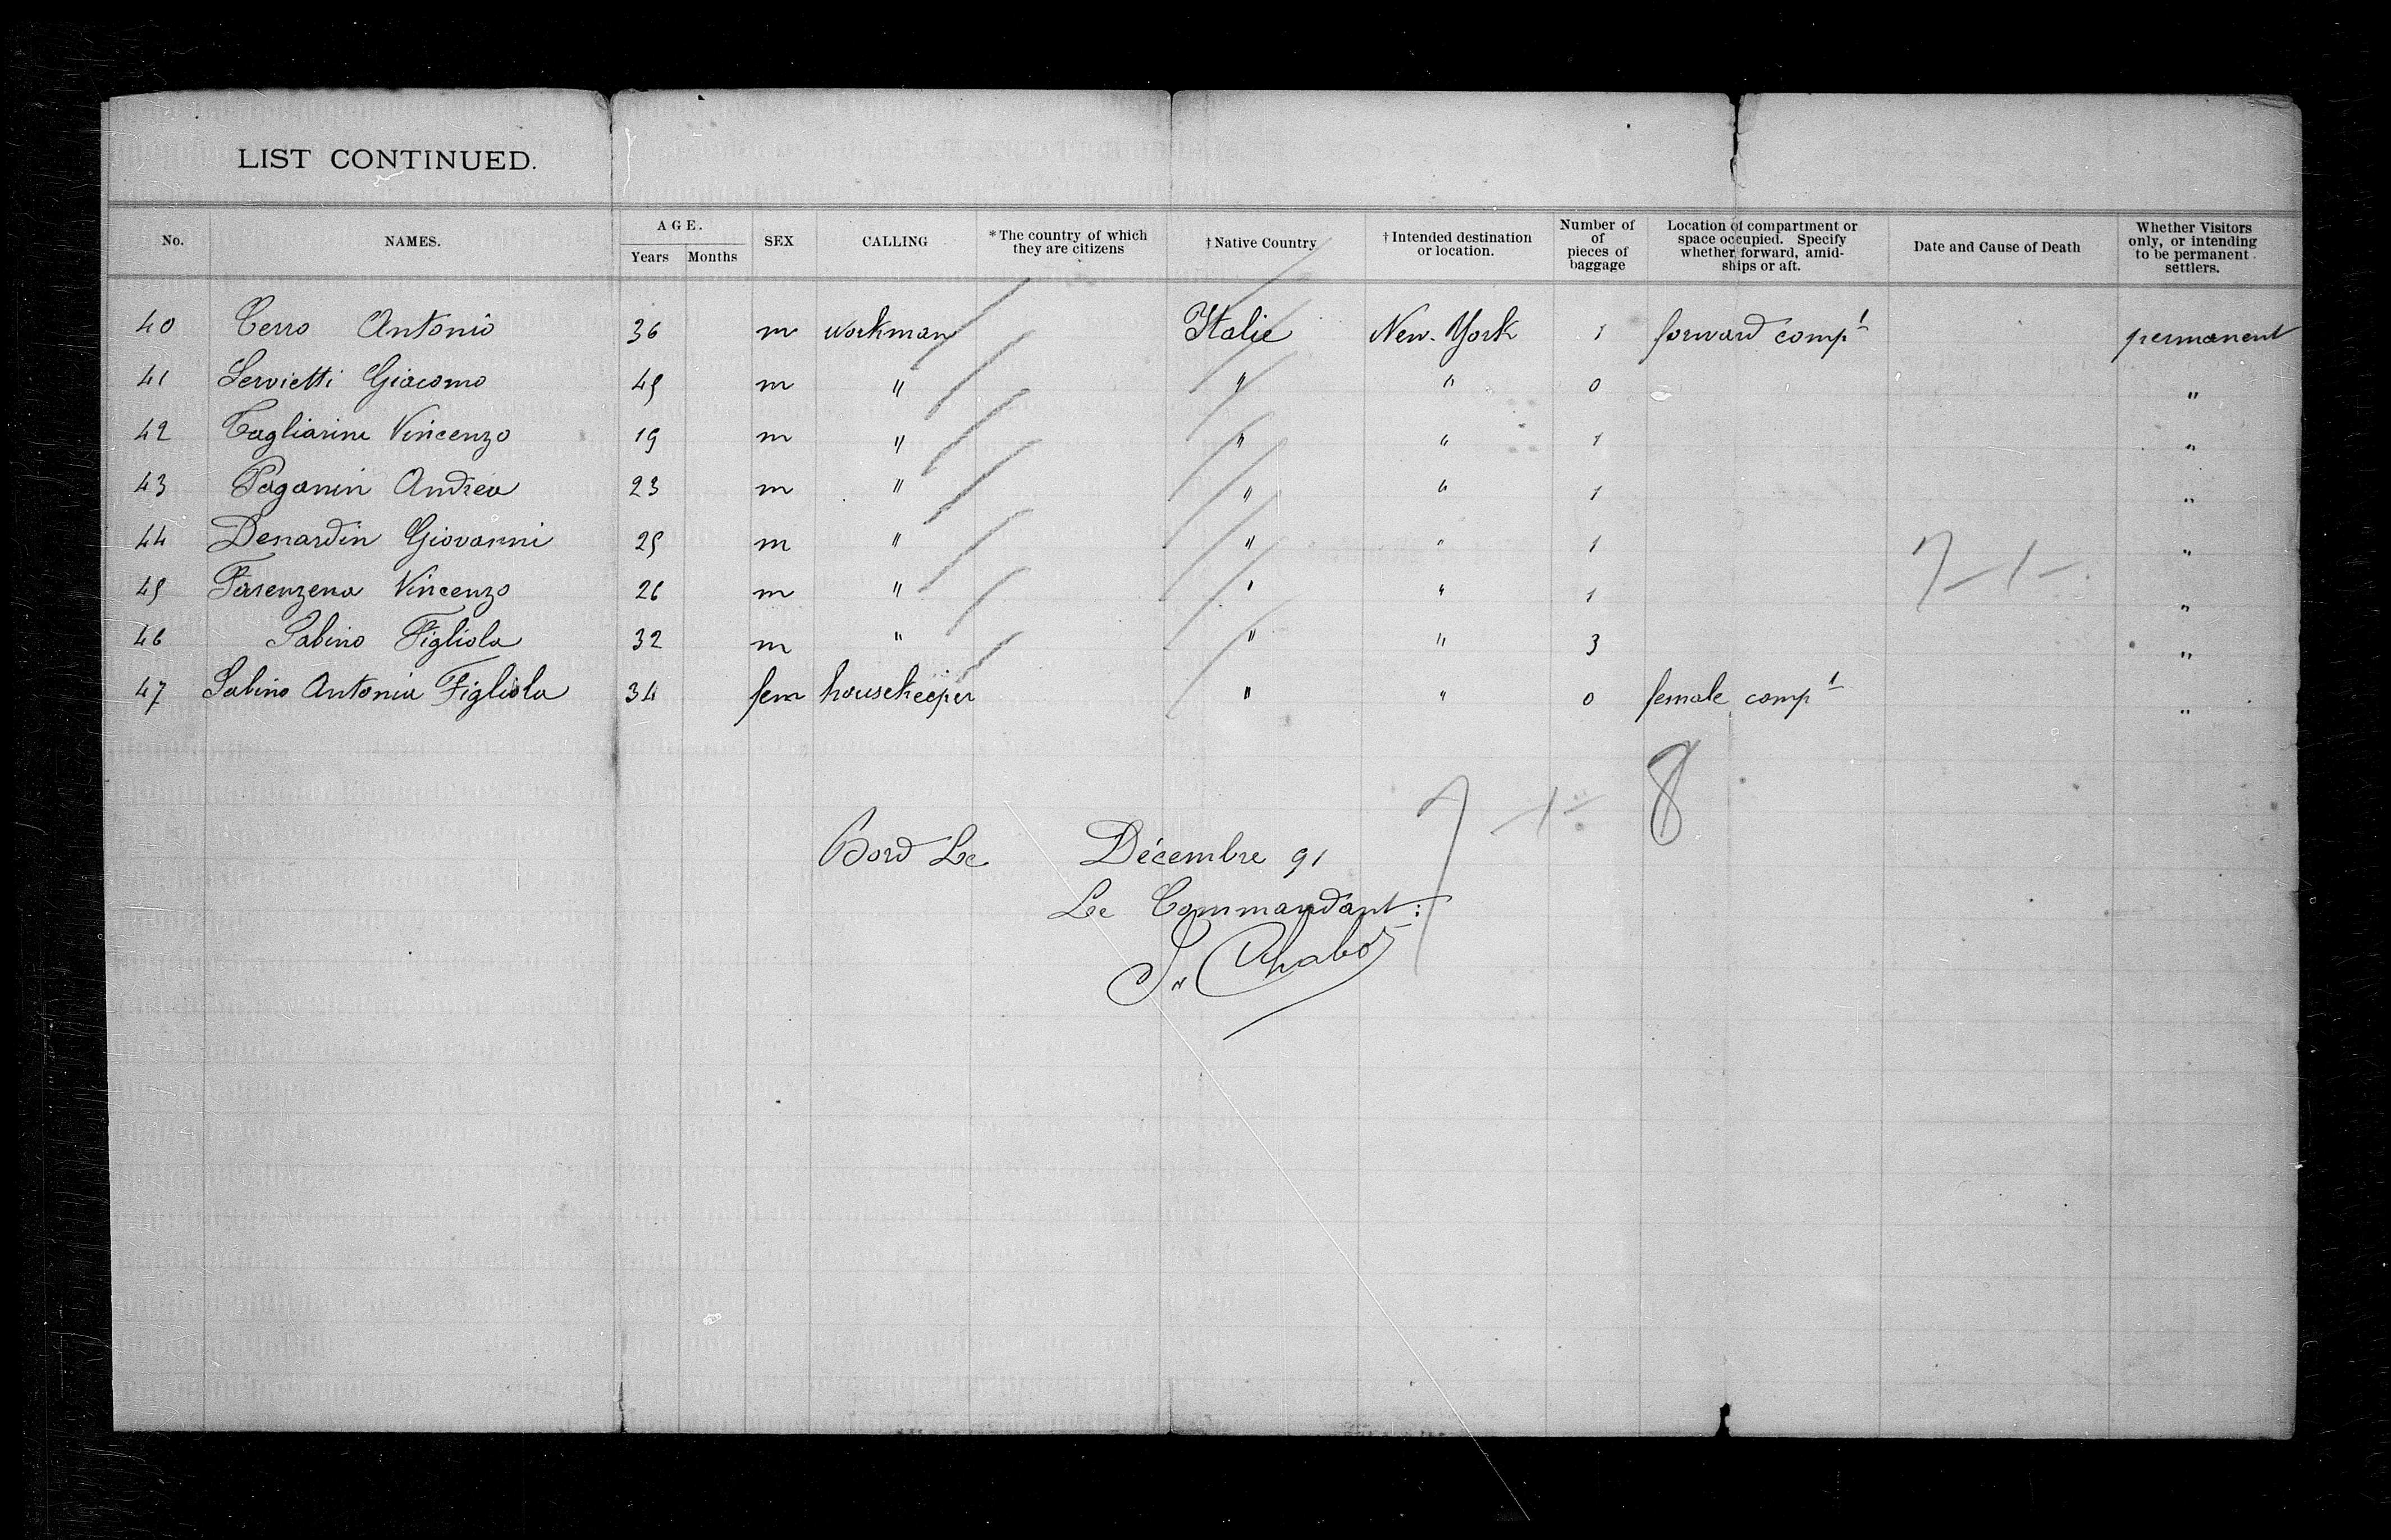 LIST CONTINUED.
No. NAMES. AGE. Years Months SEX CALLING *The country of which they are citizens †Native Country †Intended destination or location. Number of of pieces of baggage Location of compartment or space occupied. Specify whether forward, amidships or aft. Date and Cause of Death Whether Visitors only, or intending to be permanent settlers.
40 Cerro Antonio 36 m workman Italie New-York 1 forward compt permanent
41 Servietti Giacomo 45 m " " " 0 "
42 Tagliarini Vincenzo 19 m " " " 1 "
43 Paganin Andrea 23 m " " " 1 "
44 Denardin Giovanni 25 m " " " 1 "
45 Farenzena Vincenzo 26 m " " " 1 "
46 Sabino Figliola 32 m " " " 3 "
47 Sabino Antonia Figliola 34 fem housekeeper " " 0 female compt "
7 - 1 -
7 - 1 - 8
Bord Le Décembre 91
Le Commandant:
Chabot